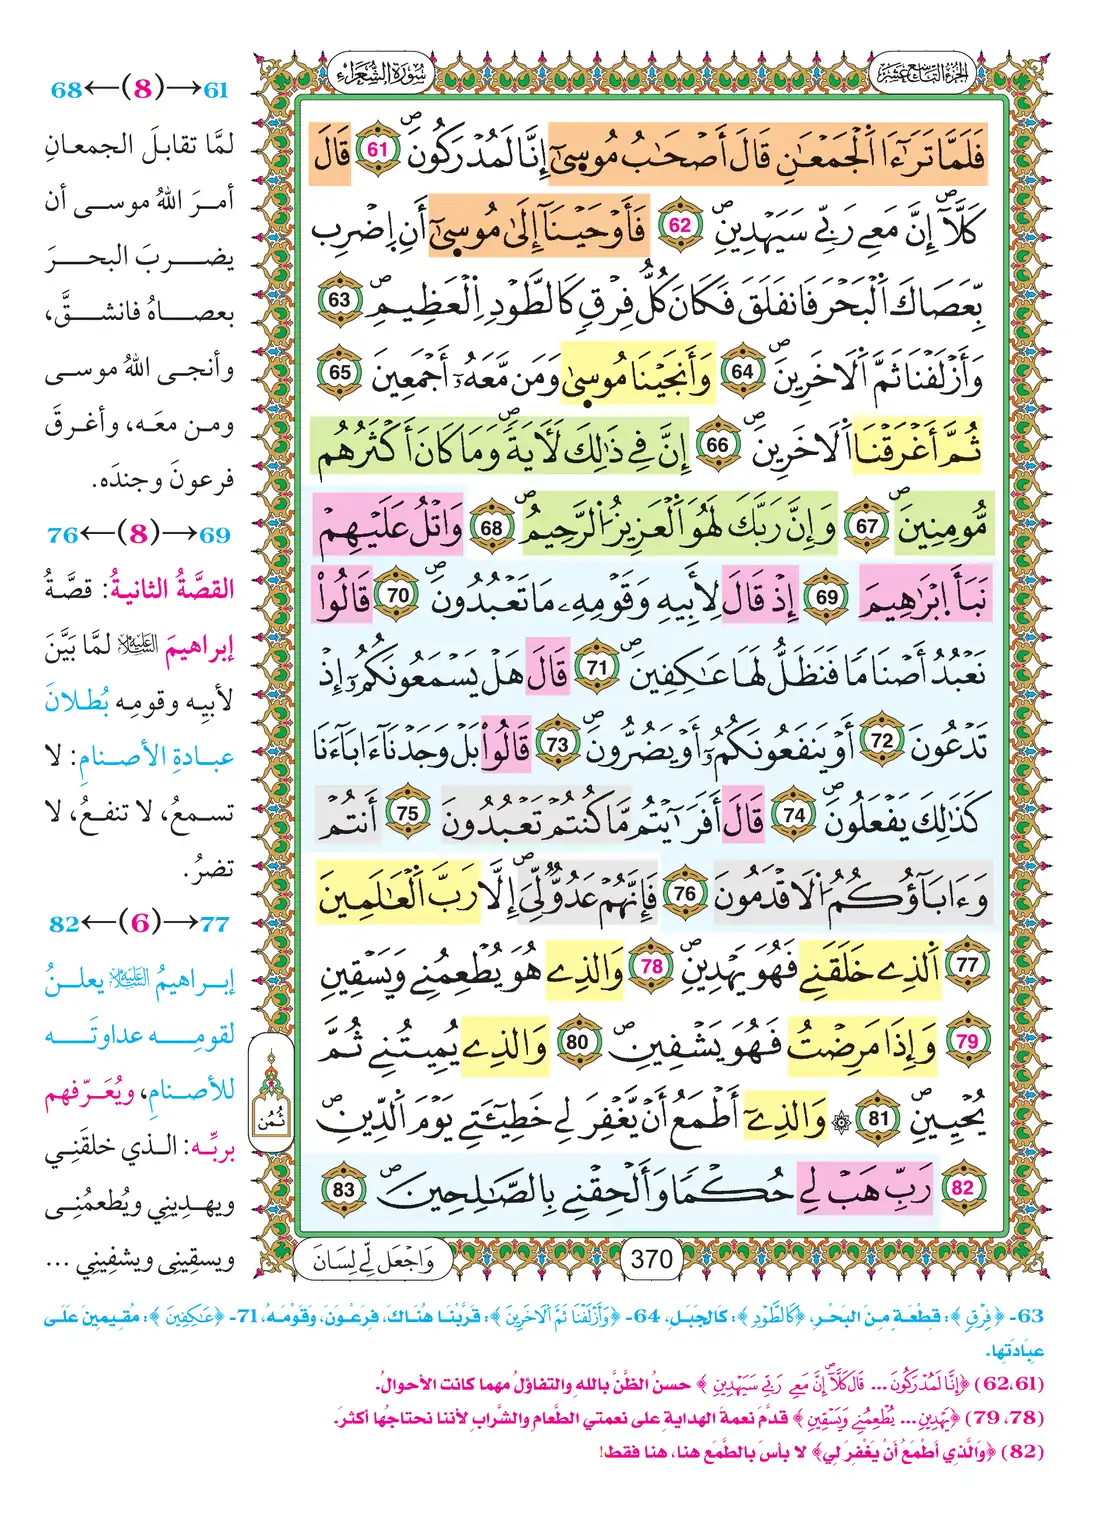 سُورَةُ الشُّعَرَاءِ
الجزء التاسع عشر
فَلَمَّا تَرَٰٓءَا اَ۬لْجَمْعَٰنِ قَالَ أَصْحَٰبُ مُوسَىٰٓ إِنَّا لَمُدْرَكُونَۖ 61 قَالَ
كَلَّآۖ إِنَّ مَعِے رَبِّے سَيَهْدِينِۖ 62 فَأَوْحَيْنَآ إِلَىٰ مُوسَىٰٓ أَنِ اِ۪ضْرِب
بِّعَصَاكَ اَ۬لْبَحْرَ فَانفَلَقَ فَكَانَ كُلُّ فِرْقٖ كَالطَّوْدِ اِ۬لْعَظِيمِۖ 63
وَأَزْلَفْنَا ثَمَّ اَ۬لَاخَرِينَۖ 64 وَأَنجَيْنَا مُوسَىٰ وَمَن مَّعَهُۥٓ أَجْمَعِينَ 65
ثُمَّ أَغْرَقْنَا اَ۬لَاخَرِينَۖ 66 إِنَّ فِے ذَٰلِكَ لَأٓيَةٗۖ وَمَا كَانَ أَكْثَرُهُم
مُّومِنِينَۖ 67 وَإِنَّ رَبَّكَ لَهُوَ اَ۬لْعَزِيزُ اُ۬لرَّحِيمُۖ 68 وَاتْلُ عَلَيْهِمْ
نَبَأَ اِ۪بْرَٰهِيمَ 69 إِذْ قَالَ لِأَبِيهِ وَقَوْمِهِۦ مَا تَعْبُدُونَۖ 70 قَالُواْ
نَعْبُدُ أَصْنَامٗا فَنَظَلُّ لَهَا عَٰكِفِينَۖ 71 قَالَ هَلْ يَسْمَعُونَكُمُۥٓ إِذْ
تَدْعُونَ 72 أَوْ يَنفَعُونَكُمُۥٓ أَوْ يَضُرُّونَۖ 73 قَالُواْ بَلْ وَجَدْنَآ ءَابَآءَنَا
كَذَٰلِكَ يَفْعَلُونَۖ 74 قَالَ أَفَرَٰٓيْتُم مَّا كُنتُمْ تَعْبُدُونَ 75 أَنتُمْ
وَءَابَآؤُكُمُ اُ۬لَاقْدَمُونَ 76 فَإِنَّهُمْ عَدُوّٞ لِّيَۖ إِلَّا رَبَّ اَ۬لْعَٰلَمِينَ
77 اَ۬لذِے خَلَقَنِے فَهُوَ يَهْدِينِۖ 78 وَالذِے هُوَ يُطْعِمُنِے وَيَسْقِينِ
79 وَإِذَا مَرِضْتُ فَهُوَ يَشْفِينِۖ 80 وَالذِے يُمِيتُنِے ثُمَّ
يُحْيِينِۖ 81 ۞ وَالذِےٓ أَطْمَعُ أَنْ يَّغْفِرَ لِے خَطِيٓـَٔتِے يَوْمَ اَ۬لدِّينِۖ
82 رَبِّ هَبْ لِے حُكْماٗ وَأَلْحِقْنِے بِالصَّٰلِحِينَۖ 83
ثُمُن
370
وَاجْعَل لِّے لِسَانَ
61→(8)←68
لمَّا تقابلَ الجمعـانِ
أمـرَ اللهُ موسـى أن
يضـربَ البحـرَ
بعصـاهُ فانشـقَّ،
وأنجـى اللهُ موسـى
ومـن معَـه، وأغـرقَ
فرعونَ وجندَه.
69→(8)←76
القصَّةُ الثانيةُ: قصَّـةُ
إبراهيمَ عليه السلام لمَّا بَيَّنَ
لأبيِـه وقومِـه بُطـلانَ
عبـادةِ الأصنـامِ: لا
تسـمعُ، لا تنفـعُ، لا
تضرُ.
77→(6)←82
إبـراهيمُ عليه السلام يعلـنُ
لقومِـه عداوتَـه
للأصنـامِ، ويُعَـرِّفهم
بربِّـه: الـذي خلقَنِـي
ويهـدِينِي ويُطعمُنِـي
ويسقِينِي ويشفِينِي ...
63- ﴿فِرْقٖ﴾: قطْعَـةٍ مـنَ البَحْـرِ، ﴿كَالطَّوْدِ﴾: كَالجَبَـلِ، 64- ﴿وَأَزْلَفْنَا ثَمَّ اَ۬لَاخَرِينَ﴾: قَرَّبْنَـا هُنَـاكَ، فرْعَـوْنَ، وَقَوْمَـهُ، 71- ﴿عَٰكِفِينَ﴾: مُقـيمِينَ عَلَـى
عبَادَتهَا.
(62،61) ﴿إِنَّا لَمُدْرَكُونَ ... قَالَ كَلَّآۖ إِنَّ مَعِے رَبِّے سَيَهْدِينِ﴾ حسنُ الظَّنِّ بالله والتفاؤلُ مهما كانت الأحوالُ.
(78، 79) ﴿يَهْدِينِ... يُطْعِمُنِے وَيَسْقِينِ﴾ قدَّمَ نعمةَ الهدايةِ على نعمتي الطَّعامِ والشَّرابِ لأننا نحتاجُها أكثرَ.
(82) ﴿وَالَّذِي أَطْمَعُ أَنْ يَغْفِرَ لِي﴾ لا بأسَ بالطَّمَعِ هنا، هنا فقط!